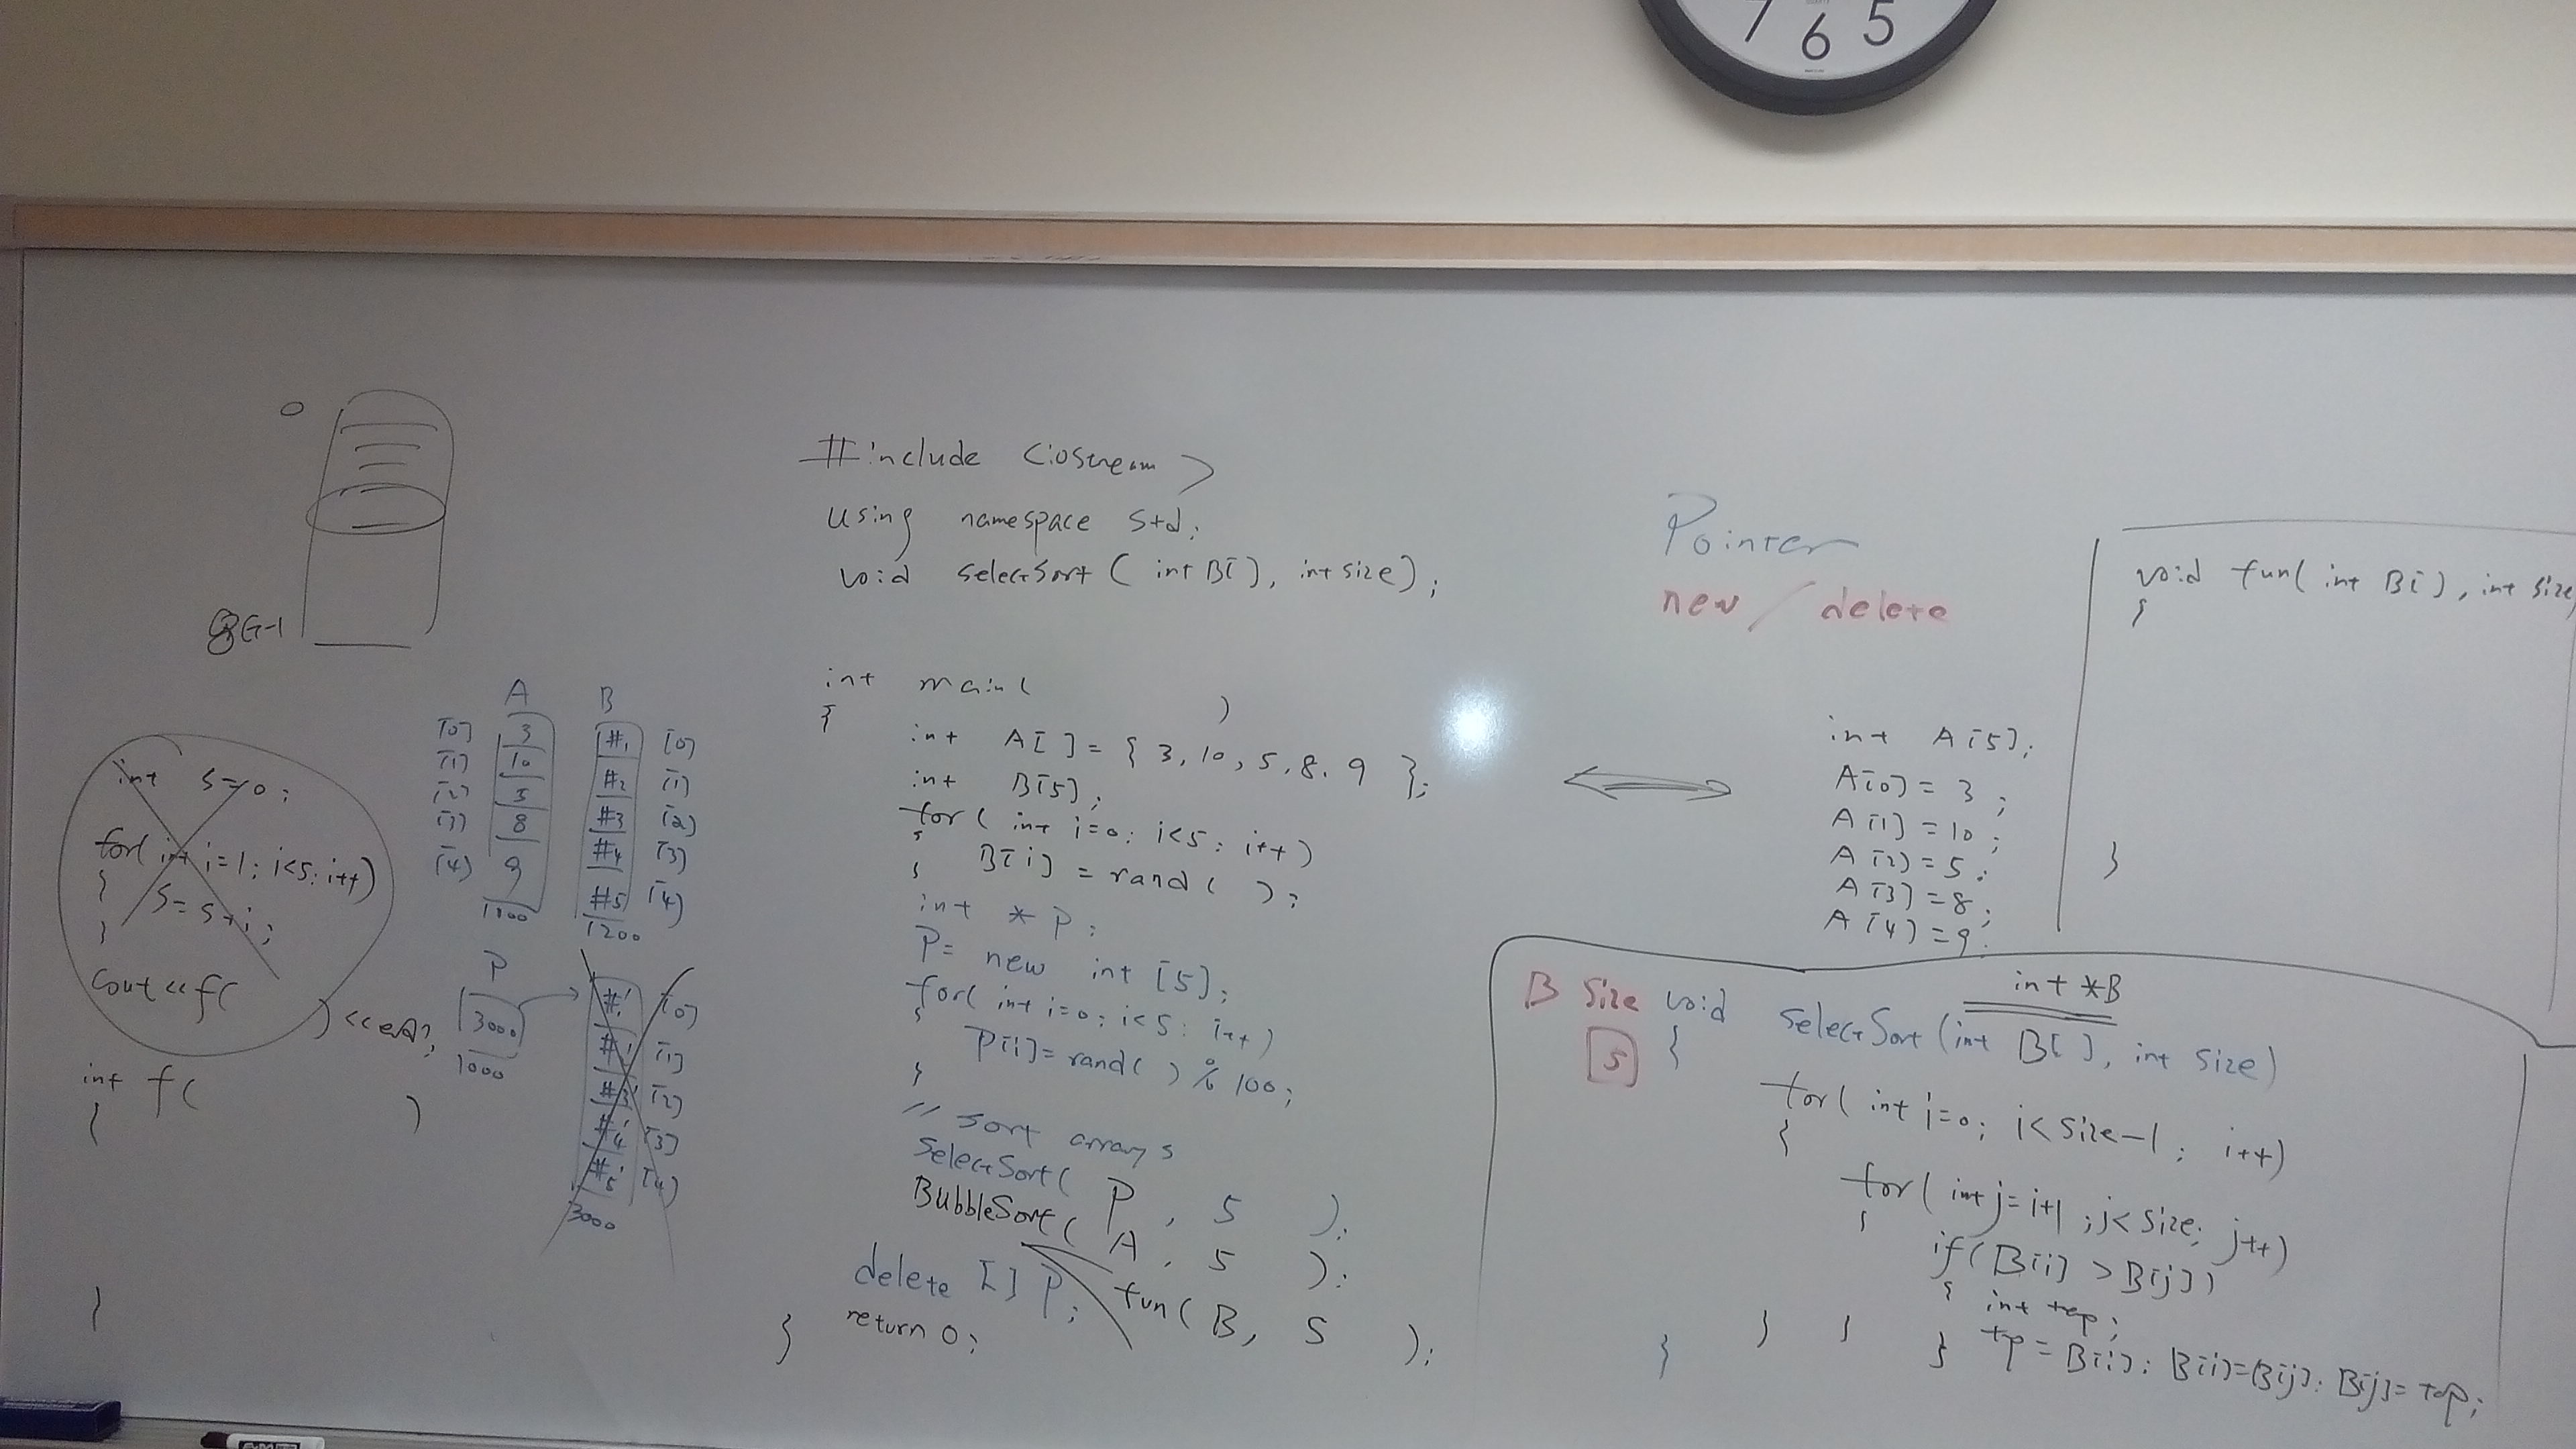 7 6 5
0
8G-1
int s=0;
for( int i=1; i<5; i++)
{
s=s+i;
}
cout <<f( ) <<endl;
int f( )
{
}
A B
[0] 3 #1 [0]
[1] 10 #2 [1]
[2] 5 #3 [2]
[3] 8 #4 [3]
[4] 9 #5 [4]
1200
P
3000
1000
#1' [0]
[1]
#3' [2]
#4' [3]
#5' [4]
3000
#include <iostream>
using namespace std;
void selectSort ( int B[], int size);
int main( )
{
int A[ ] = { 3, 10, 5, 8, 9 };
int B[5];
for( int i=0; i<5; i++)
{ B[i] = rand( );
int * P;
P= new int [5];
for( int i=0; i<5; i++)
{
P[i]=rand( ) % 100;
}
// sort arrays
SelectSort( P, 5 );
BubbleSort( A, 5 );
fun( B, 5 );
delete [] P;
return 0;
}
Pointer
new / delete
int A[5];
A[0] = 3;
A[1] = 10;
A[2] = 5;
A[3] = 8;
A[4] = 9;
void fun( int B[], int size
{
}
B size
5
int *B
void selectSort (int B[ ], int size)
{
for( int i=0; i<size-1; i++)
{
for( int j=i+1; j<size; j++)
{
if( B[i] > B[j])
{
int tep;
tp = B[i]; B[i]=B[j]; B[j]= tep;
} } } }